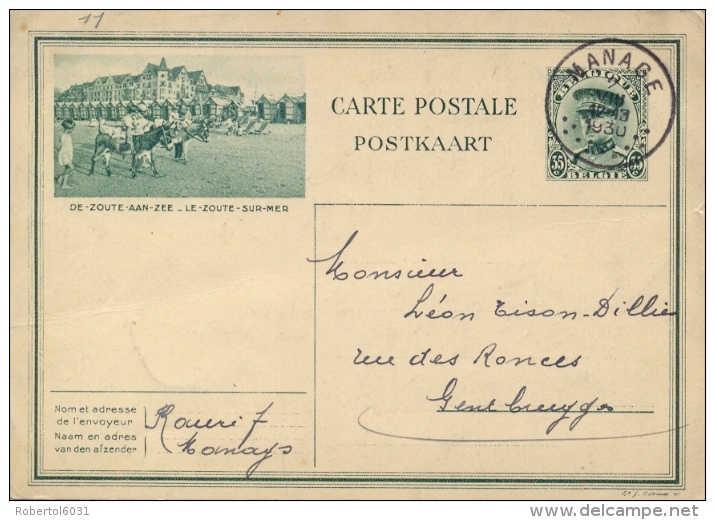 11
MANAGE
BELGIQUE
12-13
1930
35
35
BELGIE
CARTE POSTALE
POSTKAART
DE-ZOUTE-AAN-ZEE _ LE-ZOUTE-SUR-MER
Monsieur
Léon Tison-Dillies
rue des Ronces
Gentbrugge
Nom et adresse
de l'envoyeur
Naam en adres
van den afzender
Roberto16031
delcampe.net